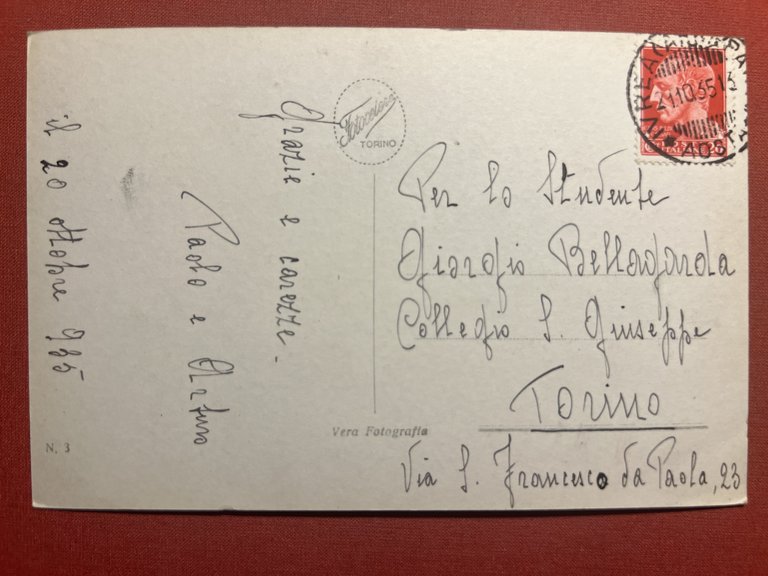 Grazie e carezze.
Paolo e Arturo
il 20 ottobre 935
Fotocelere
TORINO
Per lo Studente
Giorgio Bellagarda
Collegio S. Giuseppe
Torino
Via S. Francesco da Paola, 23
Vera Fotografia
N. 3
IVREA
21.10.35.13
AOSTA